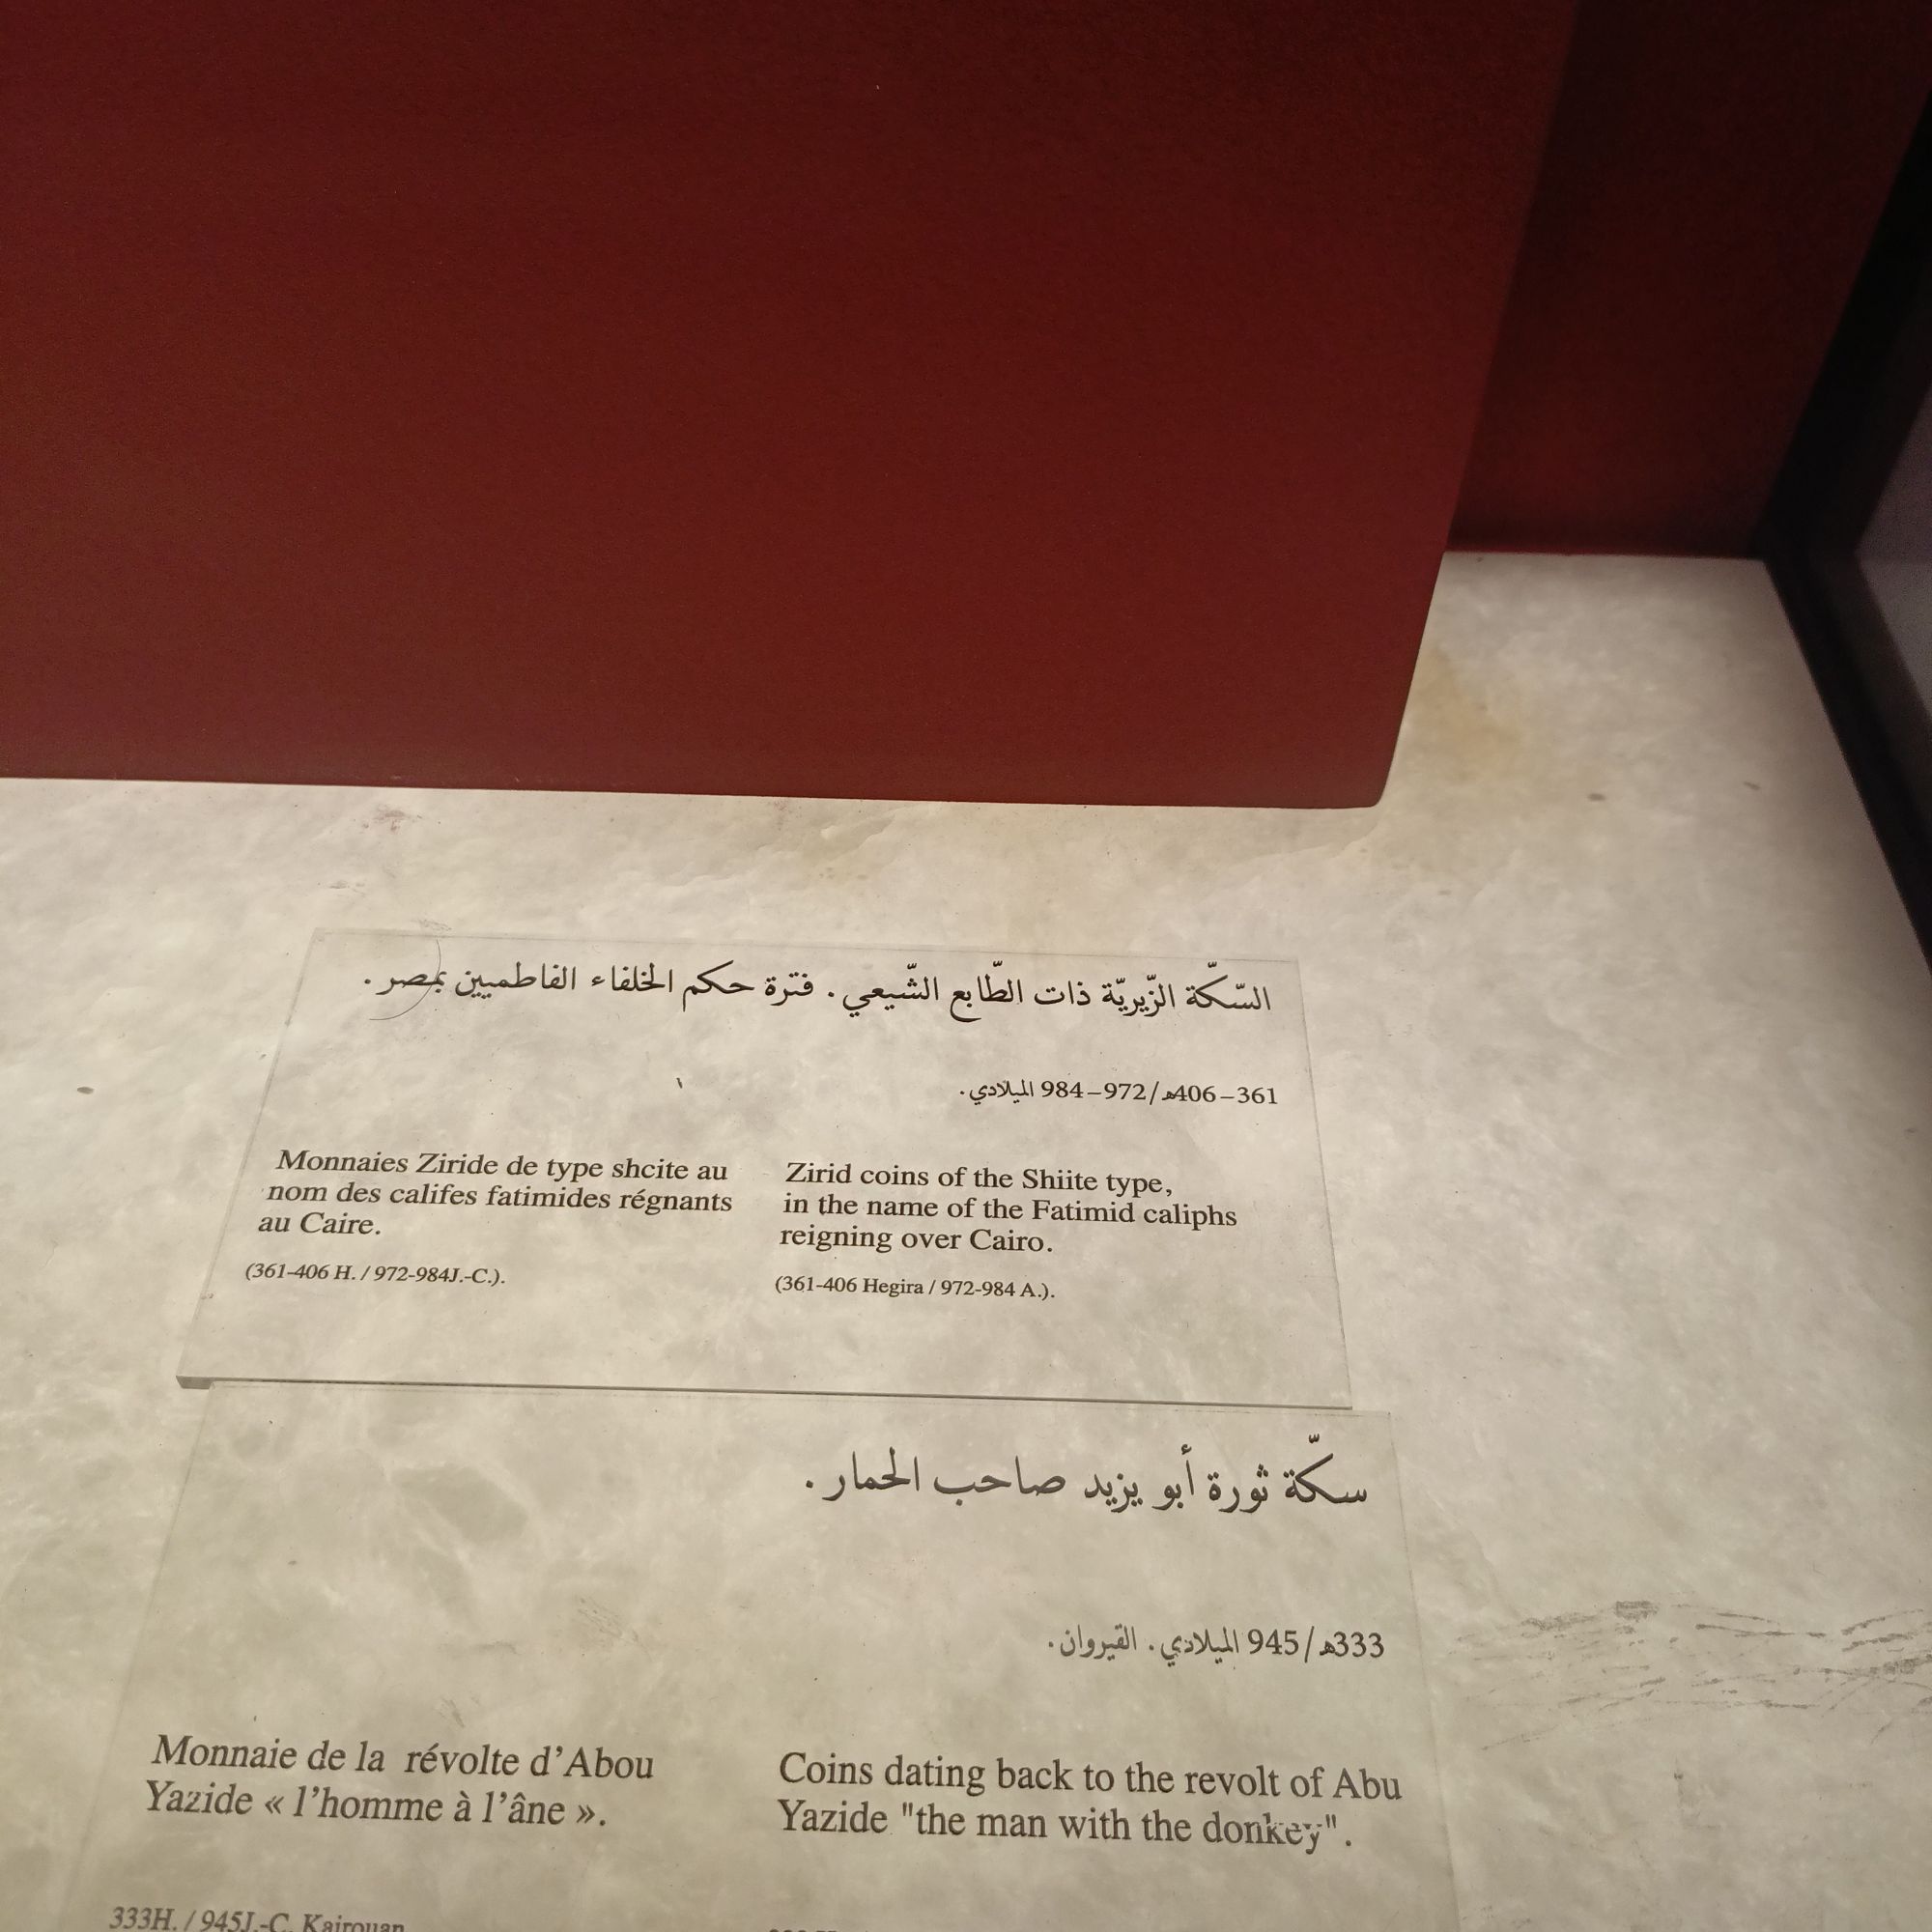 السّكّة الزّيريّة ذات الطّابع الشّيعي . فترة حكم الخلفاء الفاطميين بمصر .
361–406هـ/972–984 الميلادي.
Monnaies Ziride de type shcite au
nom des califes fatimides régnants
au Caire.
(361-406 H. / 972-984J.-C.).
Zirid coins of the Shiite type,
in the name of the Fatimid caliphs
reigning over Cairo.
(361-406 Hegira / 972-984 A.).
سكّة ثورة أبو يزيد صاحب الحمار .
333هـ/945 الميلادي . القيروان .
Monnaie de la révolte d'Abou
Yazide « l'homme à l'âne ».
333H. / 945J.-C. Kairouan
Coins dating back to the revolt of Abu
Yazide "the man with the donkey".